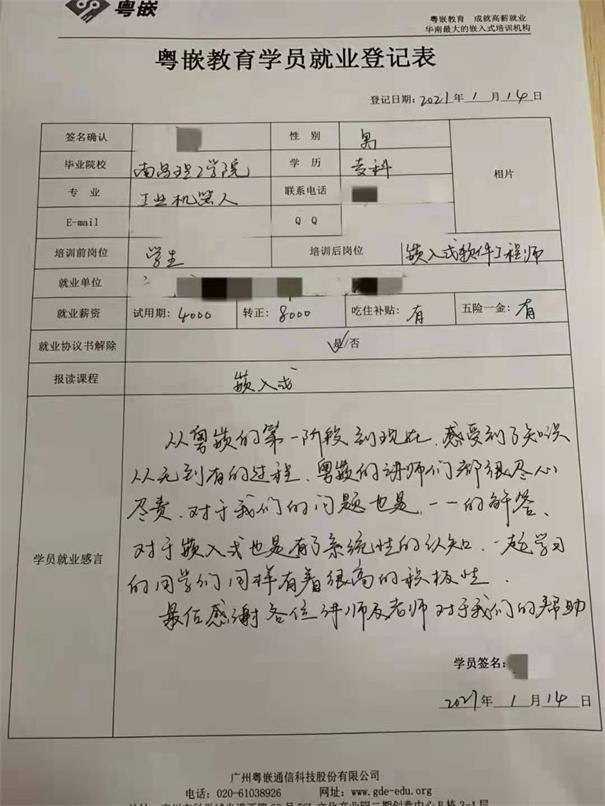 粤嵌
粤嵌教育 成就高薪就业
华南最大的嵌入式培训机构
粤嵌教育学员就业登记表
登记日期：2021年 1 月 14 日
签名确认 性 别 男 相片
毕业院校 南昌理工学院 学 历 专科
专 业 工业机器人 联系电话
E-mail Q Q
培训前岗位 学生 培训后岗位 嵌入式软件工程师
就业单位
就业薪资 试用期：4000 转正：8000 吃住补贴：有 五险一金：有
就业协议书解除 是/否
报读课程 嵌入式
学员就业感言
从粤嵌的第一阶段到现在，感受到了知识
从无到有的过程，粤嵌的讲师们都很尽心
尽责，对于我们的问题也是一一的解答、
对于嵌入式也是有了系统性的认知，一起学习
的同学们同样有着很高的积极性．
最后感谢各位讲师及老师对于我们的帮助
学员签名：
2021年 1 月 14 日
广州粤嵌通信科技股份有限公司
电话：020-61038926 网址：www.gde-edu.org